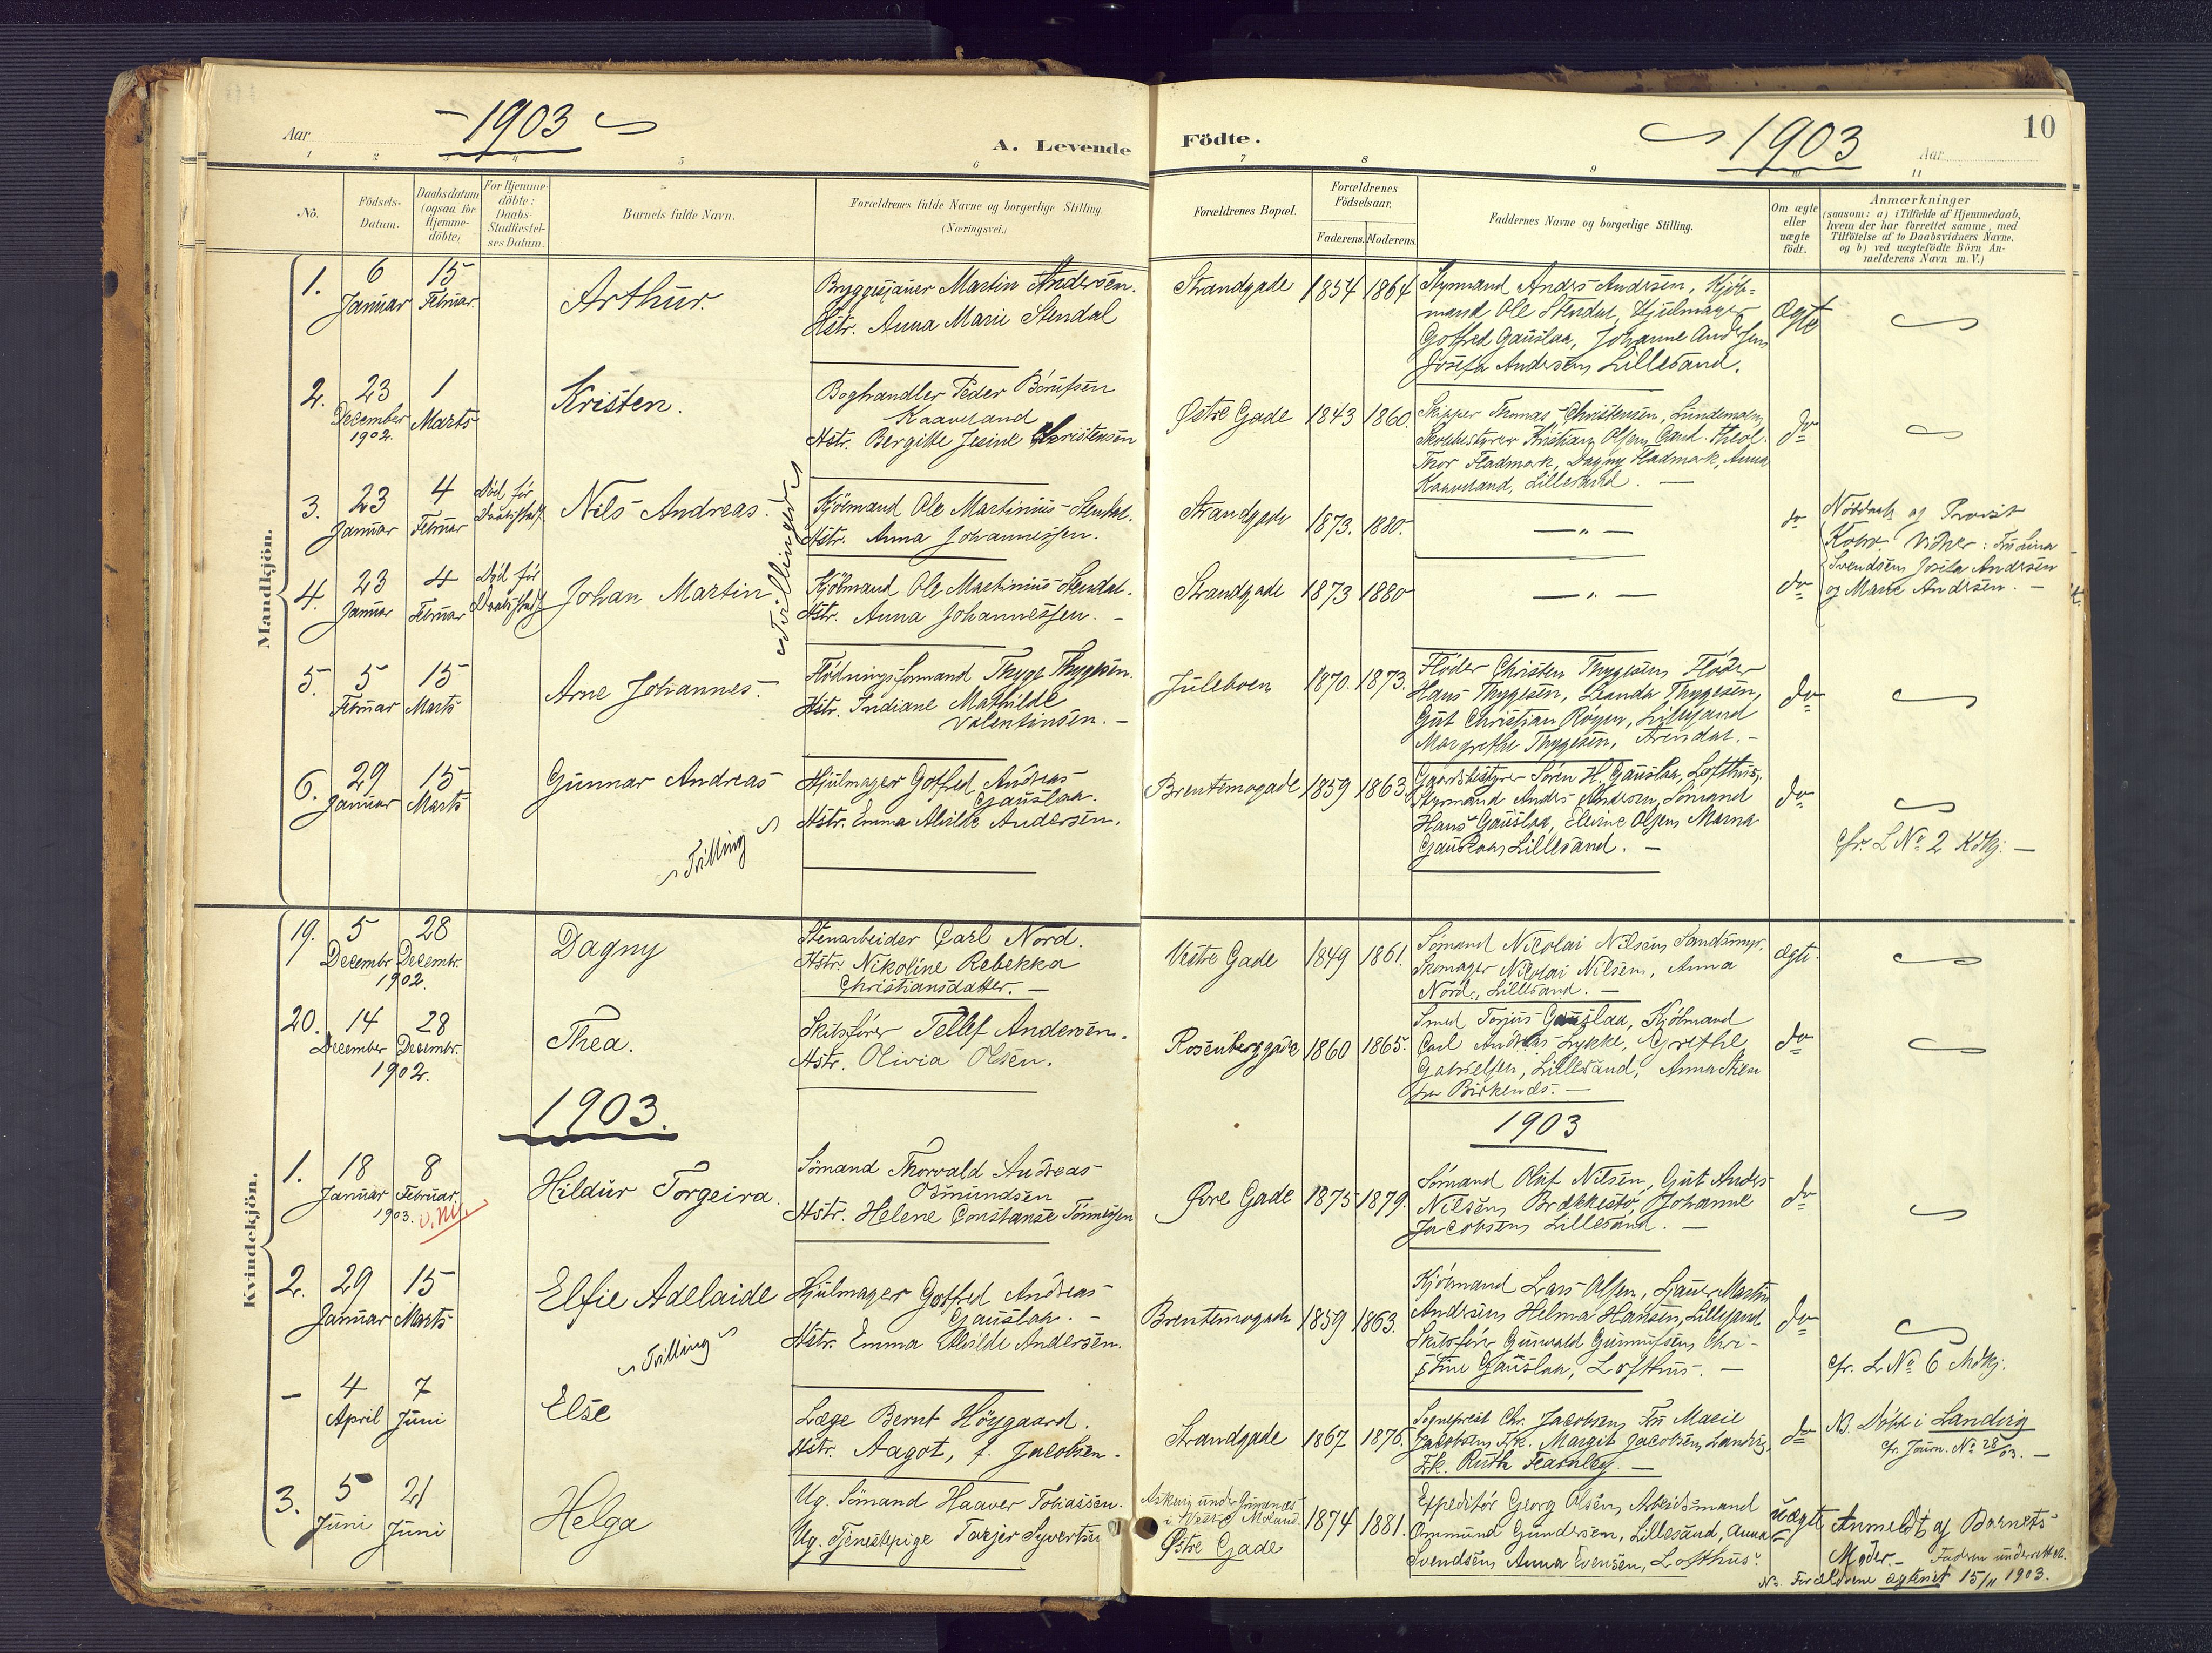 Aar
1903
A. Levende
Födte.
1903
Aar
10
1
2
3
4
5
6
7
8
9
10
11
No.
Födsels-
Datum.
Daabsdatum
(ogsaa for
Hjemme-
döbte)
For Hjemme-
döbte:
Daabs-
Stadfæstel-
ses Datum.
Barnets fulde Navn.
Forældrenes fulde Navne og borgerlige Stilling.
(Næringsvei.)
Forældrenes Bopæl.
Forældrenes
Födselsaar.
Faderens.
Moderens.
Faddernes Navne og borgerlige Stilling.
Om ægte
eller
uægte
födt.
Anmærkninger
(saasom: a) i Tilfælde af Hjemmedaab,
hvem der har forrettet samme, med
Tilföielse af to Daabsvidners Navne.
og b) ved uægtefödte Börn An-
melderens Navn m. V.)
Mandkjön.
1.
6
Januar
15
Februar.
Arthur.
Bryggesjauer Martin Andersen.
Hstr. Anna Marie Stendal
Strandgade
1854
1864
Styrmand Anders Andersen, Kjøb-
mand Ole Stendal, Hjulmager
Gotfred Gauslaa, Johanne Andersen
Josefa Andersen Lillesand.
Ægte
2.
23
December
1902.
1
Marts
Kristen.
Boghandler Peder Berulfsen
Kaaveland
Hstr. Bergitte Jesine Christensen
Østre Gade
1843
1860.
Skipper Thomas Christensen, Lundemoen,
Skolebestyrer Kristian Olsen, Cand. theol.
Thor Fladmark, Dagny Fladmark, Anna
Kaaveland, Lillesand. —
do
3.
23
Januar
4
Februar
Død før
Nils Andreas.
Kjölmand Ole Martinius Stendal.
Hstr. Anna Johannessen.
Strandgade
1873.
1880.
— „ —
do
Nöddaab af Provst
Vidner: Fru Lina
Svendsen, Josefa Andersen
og Marie Andersen. —
4.
23
Januar
4
Februar
Død før
Johan Martin
Tvillinger
Kjölmand Ole Martinius Stendal.
Hstr. Anna Johannessen. -
Strandgade
1873
1880
— „ —
do
5.
5
Februar
15
Marts
Arne Johannes.
Flödningsformand Thyge Thygesen.
Hstr. Indiane Mathilde
Valentinsen. -
Juleboen
1870.
1873.
Fløder Christen Thygesen, Fløder
Hans Thygesen, Leanda Thygesen,
Gut Christian Røyen, Lillesand
Margrethe Thygesen, Arendal. -
do
6.
29
Januar
15
Marts
Gunnar Andreas
Tvilling
Hjulmager Gotfred Andreas
Gauslaa.
Hstr. Emma Alvilde Andersen.
Brentemogade
1859
1863.
Gaardbestyrer Søren H. Gauslaa, Lofthus,
Styrmand Anders Andersen, Sømand
Hans Gauslaa, Elevine Olsen, Marna
Gauslaa, Lillesand. —
do
cfr. L No 2 Kdkj: —
Kvindekjön.
19.
5
Decembr
28
Decembr.
1902.
Dagny
Stenarbeider Carl Nord.
Hstr. Nikoline Rebekka
Christiansdatter. —
Vestre Gade
1849
1861.
Sømand Nicolai Nilsen, Sandsmyr.
Skomager Nicolai Nilsen, Anna
Nord, Lillesand. —
ægte.
20.
14
December
28
Decembr.
1902.
Thea.
Skibsfører Tellef Andersen.
Hstr. Olivia Olsen.
Rosenberggade
1860
1865.
Smed Torjus Gauslaa, Kjölmand
Carl Andreas Lykke, Grethe
Gabrielsen, Lillesand, Anna
fra Birkenæs. —
do
1903.
1903
1.
18
Januar
8
Februar.
1903.
Hildur Torgeira.
Sömand Thorvald Andreas
Osmundsen
Hstr. Helene Constanse Tönnesen
Øvre Gade
1875
1879.
Sømand Oluf Nilsen, Gut Anders
Nilsen, Brækkestø, Johanne
Jacobsen, Lillesand. —
do
2.
29
Januar
15
Marts
Elfie Adelaide
Tvilling
Hjulmager Gotfred Andreas
Gauslaa. -
Hstr. Emma Alvilde Andersen.
Brentemogade
1859
1863.
Kjölmand Lars Olsen, Sjauer Martin
Andersen, Helma Hansen, Lillesand
Skibsfører Gunvald Gunnufsen, Chri-
stine Gauslaa, Lofthus. —
do
cfr. L No 6 Mdkj:
—
4
April
7
Juni
Else
Læge Bernt Höygaard.
Hstr. Aagot, f. Jacobsen.
Strandgade
1867
1876.
Sogneprest Chr. Jacobsen, Fru Marie
Jacobsen, Frk. Margit Jacobsen, Landvig,
Frk. Ruth Fearnley. —
do
NB. Døbt i Landvig
cfr. Journ. No 28/03. —
3.
5
Juni
21
Juni
Helga
Ug. Sömand Haaver Tobiassen.
Ug. Tjenestepige Tarjer Syvertsen
i Vestre Moland.
Østre Gade
1874
1881.
Expeditör Georg Olsen, Arbeidsmand
Ommund Gundersen, Lillesand, Anna
Svendsen, Anna Evensen, Lofthus.
uægte
Anmeldt af Barnets
Moder. - Faderen underrettet.
No. Forældrene ægteviet 15/11 1903.